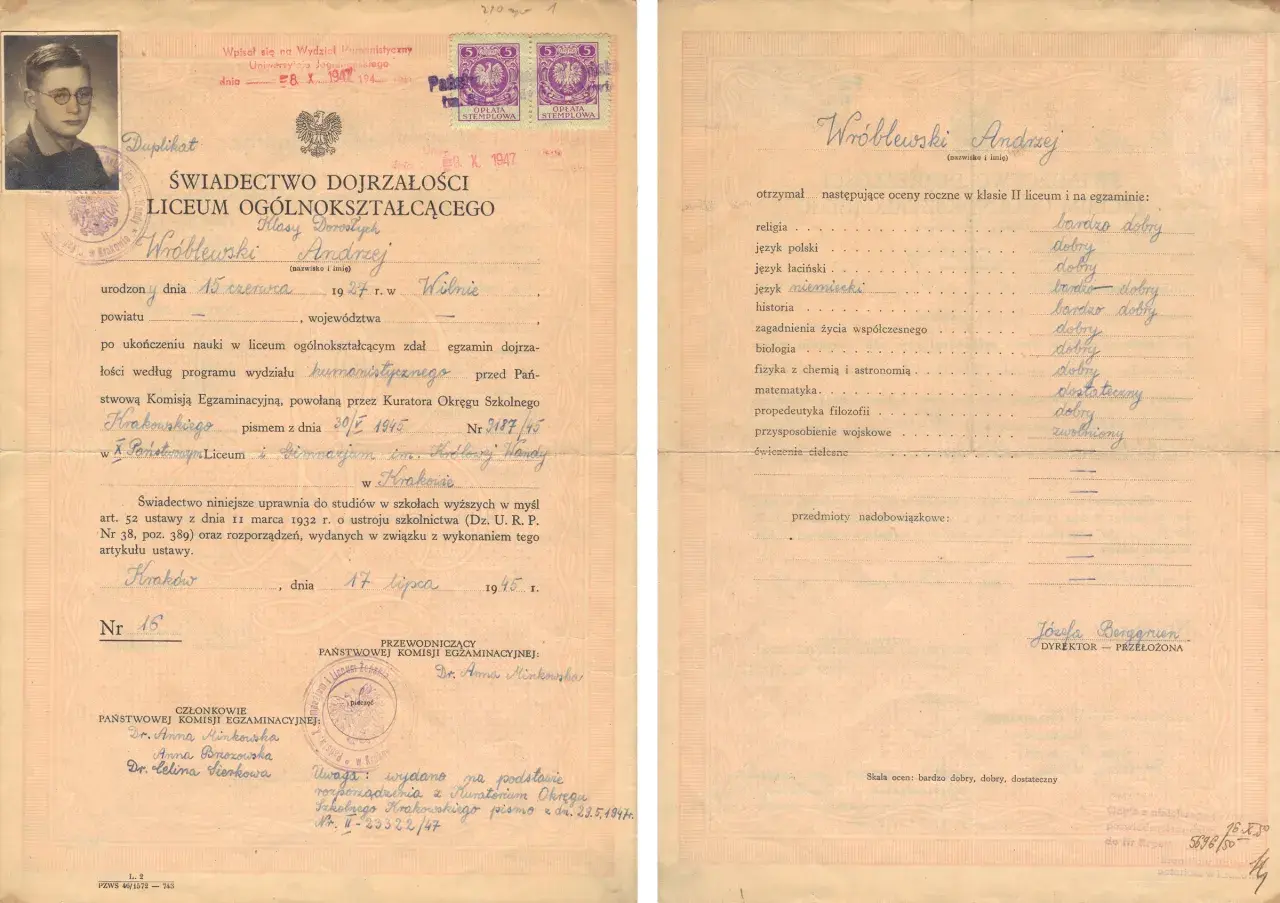 Wpisał się na Wydział Humanistyczny
Uniwersytetu Jagiellońskiego
dnia 8. X. 1947 194
5 5 5 5
OPŁATA STEMPLOWA OPŁATA STEMPLOWA
Duplikat
9. X. 1947
ŚWIADECTWO DOJRZAŁOŚCI
LICEUM OGÓLNOKSZTAŁCĄCEGO
Klasy Dorosłych
Wróblewski Andrzej
(nazwisko i imię)
urodzony dnia 15 czerwca 1927 r. w Wilnie,
powiatu —, województwa —,
po ukończeniu nauki w liceum ogólnokształcącym zdał egzamin dojrza-
łości według programu wydziału humanistycznego przed Pań-
stwową Komisją Egzaminacyjną, powołaną przez Kuratora Okręgu Szkolnego
Krakowskiego pismem z dnia 30/V 1945 Nr 9187/45
w X Państwowym Liceum i Gimnazjum im. Królowej Wandy
w Krakowie
Świadectwo niniejsze uprawnia do studiów w szkołach wyższych w myśl
art. 52 ustawy z dnia 11 marca 1932 r. o ustroju szkolnictwa (Dz. U. R. P.
Nr 38, poz. 389) oraz rozporządzeń, wydanych w związku z wykonaniem tego
artykułu ustawy.
Kraków, dnia 17 lipca 1945 r.
Nr 16
PRZEWODNICZĄCY
PAŃSTWOWEJ KOMISJI EGZAMINACYJNEJ:
Dr. Anna Minkowska
pieczęć
CZŁONKOWIE
PAŃSTWOWEJ KOMISJI EGZAMINACYJNEJ:
Dr. Anna Minkowska
Anna Brzozowska
Dr. Celina Sierkowa
Uwaga: wydano na podstawie
rozporządzenia z Kuratorium Okręgu
Szkolnego Krakowskiego pismo z dn. 29.5.1947r.
Nr. II-23322/47
L. 2
PZWS 46/1572 — 743
Wróblewski Andrzej
(nazwisko i imię)
otrzymał następujące oceny roczne w klasie II liceum i na egzaminie:
religia bardzo dobry
język polski dobry
język łaciński dobry
język niemiecki bardzo dobry
historia bardzo dobry
zagadnienia życia współczesnego dobry
biologia dobry
fizyka z chemią i astronomią dobry
matematyka dostateczny
propedeutyka filozofii dobry
przysposobienie wojskowe zwolniony
ćwiczenia cielesne —
—
przedmioty nadobowiązkowe:
—
—
—
Józefa Berggruen
DYREKTOR — PRZEŁOŻONA
Skala ocen: bardzo dobry, dobry, dostateczny
16.X.50
5696/50